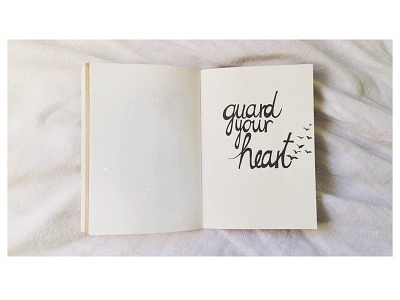 guard
your
heart